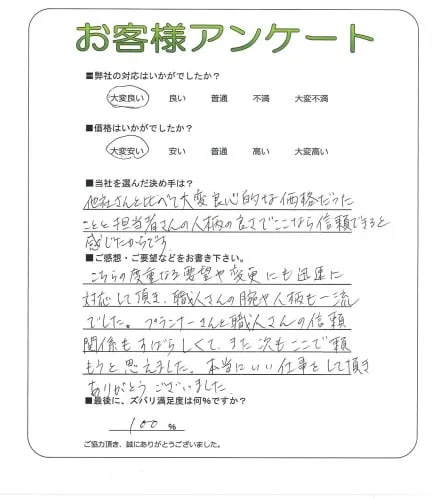 お客様アンケート
■弊社の対応はいかがでしたか?
大変良い 良い 普通 不満 大変不満
■価格はいかがでしたか?
大変安い 安い 普通 高い 大変高い
■当社を選んだ決め手は?
他社さんと比べて大変良心的な価格だった
ことと担当者さんの人柄の良さでここなら信頼できると
感じたからです。
■ご感想・ご要望などをお書き下さい。
こちらの度重なる要望や変更にも迅速に
対応して頂き、職人さんの腕や人柄も一流
でした。プランナーさんと職人さんの信頼
関係もすばらしくて、また次もここで頼
もうと思えました。本当にいい仕事をして頂き
ありがとうございました。
■最後に、ズバリ満足度は何%ですか?
100 %
ご協力頂き、誠にありがとうございました。